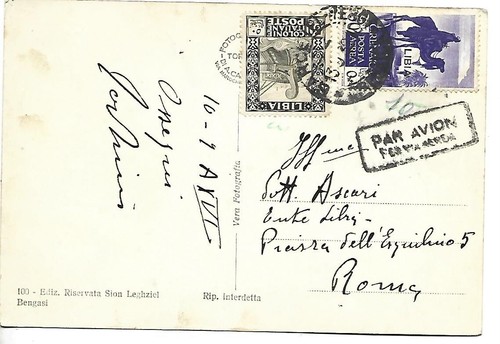 10-9 A XVI
Ossequi
Vera Fotografia
100 - Ediz. Riservata Sion Leghziel
Bengasi
Rip. interdetta
COLONIE ITALIANE
POSTE
LIBIA
POSTA AEREA
LIBIA
PAR AVION
PER VIA AEREA
Dott. Ascari
Ente Libia
Piazza dell'Esquilino 5
Roma